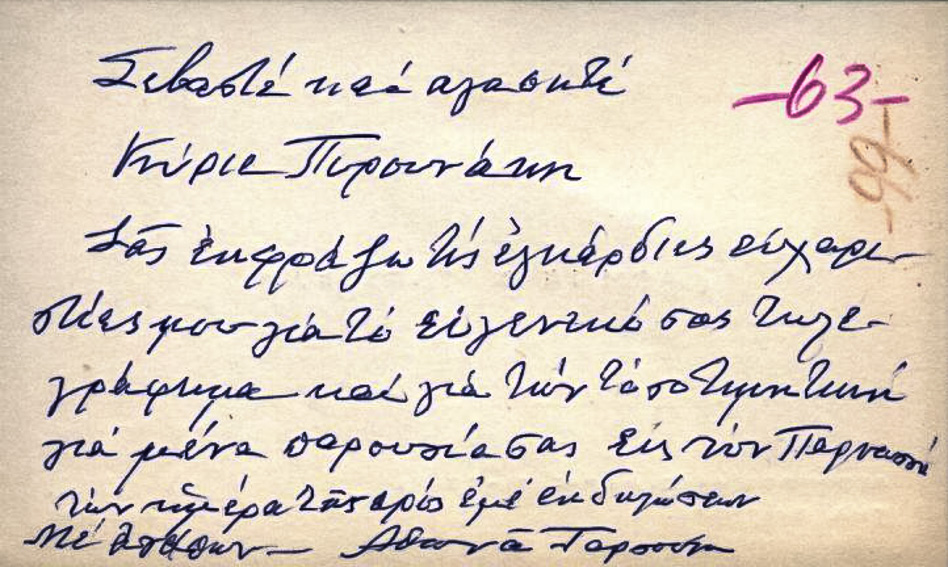 Σεβαστέ καί αγαπητέ
-63-
-99-
Κύριε Πυρουνάκη
Σᾶς ἐκφράζω τίς ἐγκάρδιες εὐχαρι-
στίες μου γιά τό εὐγενικό σας τηλε-
γράφημα καί γιά τήν τόσο τιμητική
γιά μένα παρουσία σας εἰς τόν Παρνασσό
τήν ἡμέρα τῆς πρός ἐμέ ἐκδηλώσεων
Μέ ἀγάπην - Ἀθηνᾶ Ταρσούλη